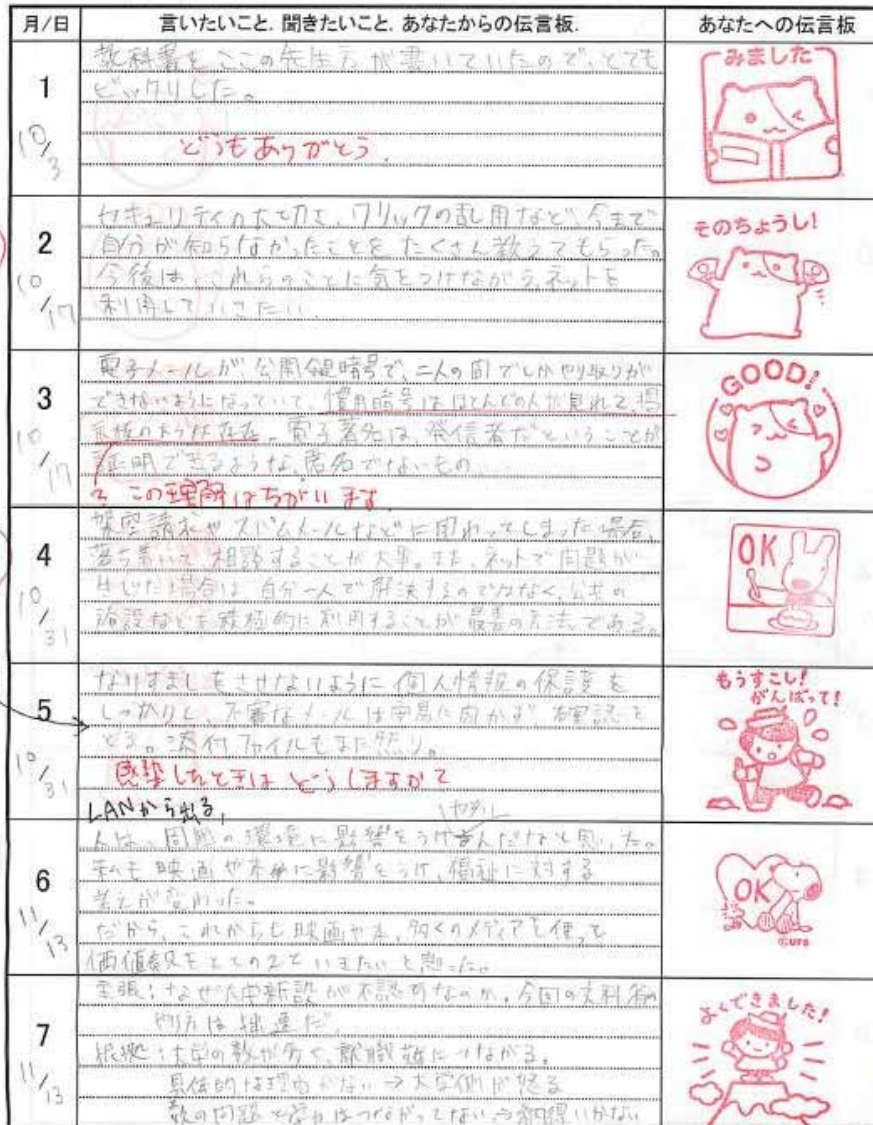 月/日 言いたいこと. 聞きたいこと. あなたからの伝言板. あなたへの伝言板
1
10/3
教科書をここの先生方が書いていたので、とても
ビックリした。
どうもありがとう.
みました
2
10/17
セキュリティの大切さ、クリックの乱用など、今まで
自分が知らなかったことをたくさん教えてもらった。
今後は、これらのことに気をつけながら、ネットを
利用していきたい.
そのちょうし!
3
10/17
電子メールが、公開鍵暗号で、二人の間でしかやり取りが
できないようになっていて、慣用暗号はほとんどの人が見れて、掲
示板のような存在。電子署名は、発信者だということが
証明できるような、匿名でないもの
この理解はちがいます
GOOD!
4
10/31
架空請求やスパムメールなどに関わってしまった場合、
落ち着いて相談することが大事。また、ネットで問題が
生じた場合は、自分一人で解決するのではなく、公共の
施設なども積極的に利用することが最善の方法である。
OK
5
10/31
なりすましをさせないように個人情報の保護を
しっかりし、不審なメールは安易に開かず、確認を
とる。添付ファイルもまた然り。
感染したときはどうしますか?
LANから出る,
もうすこし!
がんばって!
6
11/13
人は、周囲の環境に影響をうけ んだなと思った。
私も映画や本 に影響をうけ、福祉に対する
考えが変わった。
だから、これからも映画や本、多くのメディアを使って
価値観をととのえていきたいと思った。
OK
7
11/13
主張:なぜ大学新設が不認可なのか。今回の文科省の
やり方は拙速だ.
根拠:大学の数が多く、就職難につながる。
具体的な理由がない→大学側が怒る
数の問題と学力はつながってない→納得いかない
よくできました!